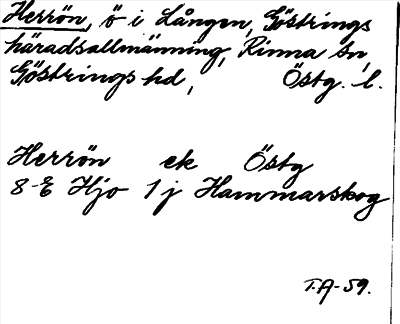 Herrön, ö i Lången, Göstrings
häradsallmänning, Rinna sn,
Göstrings hd, Östg. l.
Herrön ek Östg
8-E Hjo 1j Hammarskog
T.A-59.